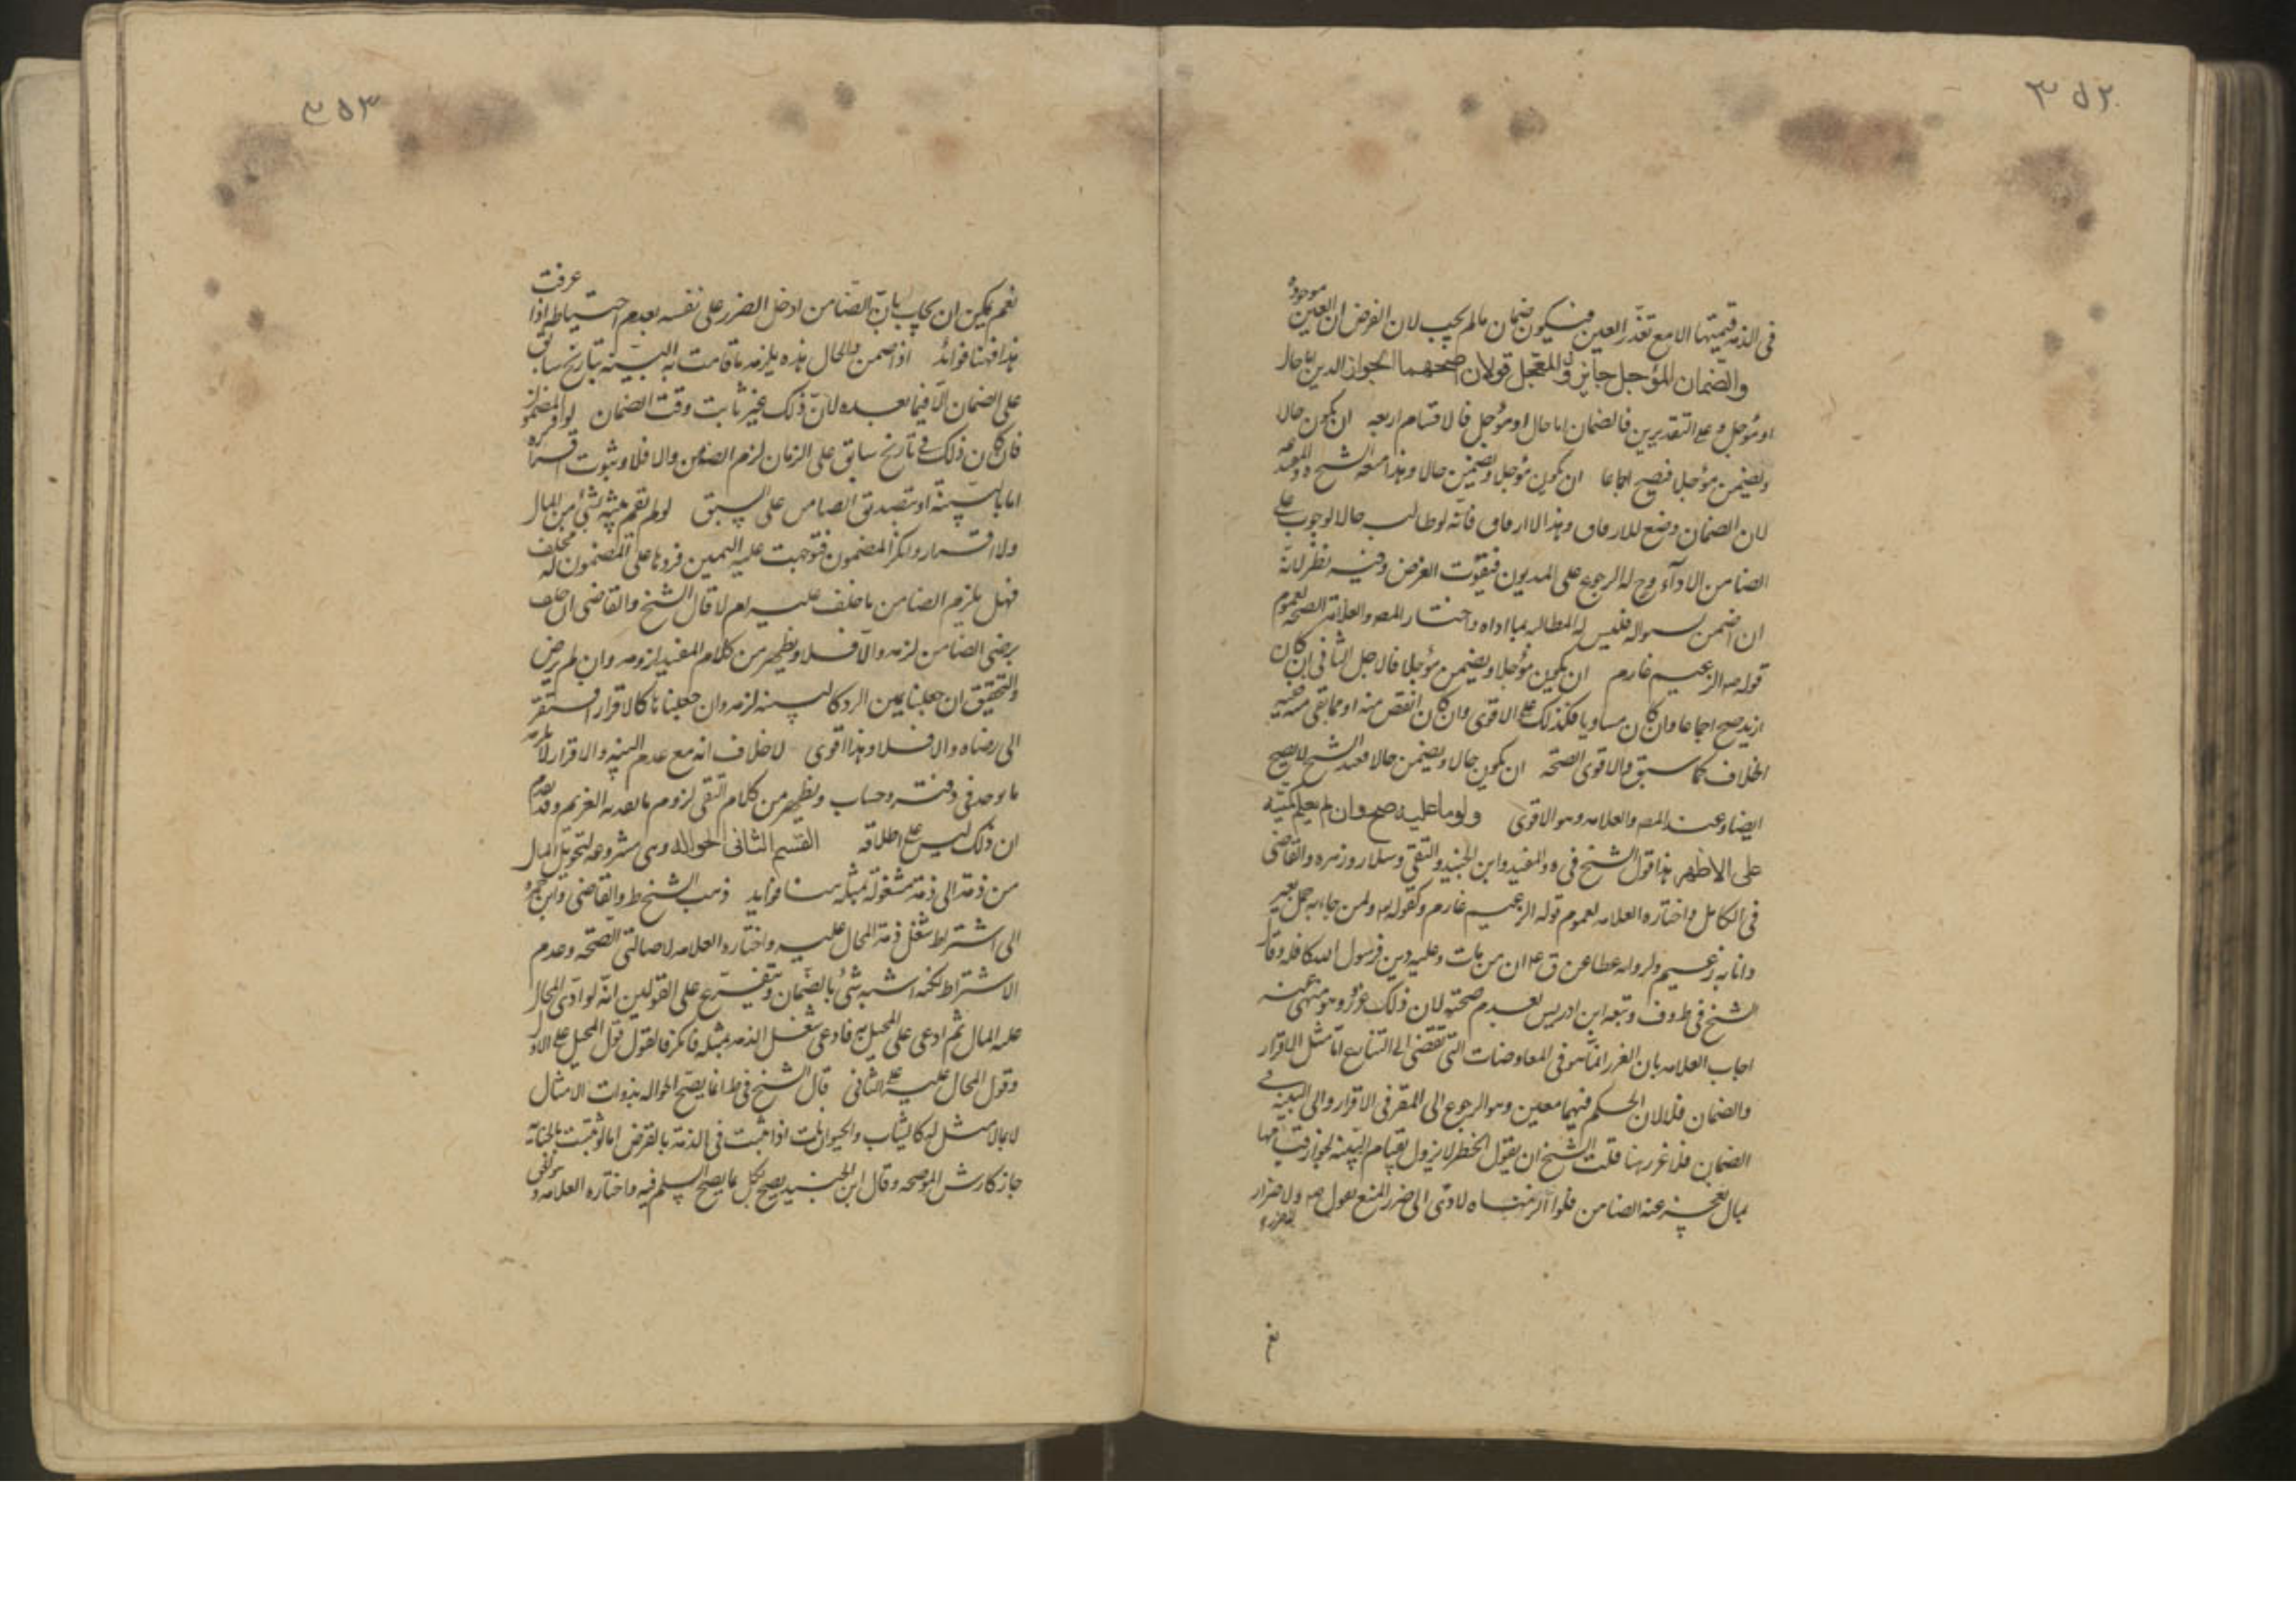 ٣٥٢
في الذمة قيمتها الا مع تعذر العين فيكون ضمان مالم يجب لان الفرض ان العين موجودة
والضمان المؤجل جايز وفي المعجل قولان اصحهما الجواز الدين اما حال
او مؤجل وعلى التقديرين فالضمان اما حال او مؤجل فالاقسام اربعة ان يكون حالا
ويضمن مؤجلا فيصح اجماعا ان يكون مؤجلا ويضمن حالا وهذا منعه الشيخ والمفيد
لان الضمان وضع للارفاق وهذا لا ارفاق فانه لو طالب حالا لوجب على
الضامن الاداء وح له الرجوع على المديون فيفوت الغرض وفيه نظر لانه
ان ضمن بسواله فليس له المطالبة بما اداه واختار المص والعلامة الصحة لعموم
قوله ص الزعيم غارم ان يكون مؤجلا ويضمن مؤجلا فالاجل الثاني ان كان
ازيد صح اجماعا وان كان مساويا فكذلك على الاقوى وان كان انقص منه او مما بقي منه ففيه
الخلاف كما سبق والاقوى الصحة ان يكون حالا ويضمن حالا فعند الشيخ لا يصح
ايضا وعند المص والعلامه وهو الاقوى ولو ما عليه صح وان لم يعلم كميته
على الاظهر هذا قول الشيخ في ه والمفيد وابن الجنيد والتقي وسلار وزهره والقاضي
في الكامل واختاره العلامه لعموم قوله الزعيم غارم وكقوله تع ولمن جاء به حمل بعير
وانا به زعيم ولروايه عطا عن ق ع ان من مات وعليه دين فرسول الله كافله وقال
الشيخ في ط وف وتبعه ابن ادريس بعدم صحته لان ذلك غرر وهو منهي عنه
اجاب العلامه بان الغرر انما هو في المعاوضات التي تفضي الى التنازع اما مثل الاقرار
والضمان فلا لان الحكم فيهما معين وهو الرجوع الى المقر في الاقرار والى البينه في
الضمان فلا غرر هنا قلت للشيخ ان يقول الخطر لا يزول بقيام البينه لجواز قيامها
بمال يعجز عنه الضامن فلو الزمناه لادى الى ضرر المنع بقوله ص ولا ضرار
نع
٣٥٣
نعم يمكن ان يجاب بان الضامن ادخل الضرر على نفسه بعدم احتياطه اذا عرفت
هذا فهنا فوائد اذا ضمن والحال هذه يلزمه ما قامت به البينه بتاريخ سابق
على الضمان لا فيما بعده لان ذلك غير ثابت وقت الضمان لو اقر المضمون
فان كان ذلك في تاريخ سابق على الزمان لزم الضامن والا فلا وثبوت السبق
اما بالبينة او بتصديق الضامن على السبق لو لم تقم بينه بشيء من المال
ولا اقرار وانكر المضمون فتوجهت عليه اليمين فردها على المضمون له فحلف
فهل يلزم الضامن ما حلف عليه ام لا قال الشيخ والقاضي ان حلف
برضى الضامن لزمه والا فلا ويظهر من كلام المفيد لزومه وان لم يرض
والتحقيق ان جعلنا يمين الرد كالبينه لزمه وان جعلناها كالاقرار افتقر
الى رضاه والا فلا وهذا اقوى لا خلاف انه مع عدم البينه والاقرار لا يلزمه
ما يوجد في دفتر وحساب ويظهر من كلام التقي لزوم ما يقر به الغريم وقد تقدم
ان ذلك ليس على اطلاقه القسم الثاني الحواله وهي مشروعه لتحويل المال
من ذمة الى ذمة مشغولة بمثله هنا فوايد ذهب الشيخ ط والقاضي وابن حمزه
الى اشتراط شغل ذمة المحال عليه واختار العلامه لاصالتي الصحه وعدم
الاشتراط لكنه اشبه شيء بالضمان ويتفرع على القولين انه لو ادى المحال
عليه المال ثم ادعى على المحيل به فادعى شغل الذمه بمثله فانكر فالقول قول المحيل على الاول
وقول المحال عليه على الثاني قال الشيخ في ط انما يصح الحواله بذوات الامثال
لا بما لا مثل له كالثياب والحيوان قلت اذا ثبت في الذمة بالقرض اما لو ثبت بالجناية
جاز كارش الموضحه وقال ابن الجنيد يصح بكل ما يصح السلم فيه واختاره العلامه